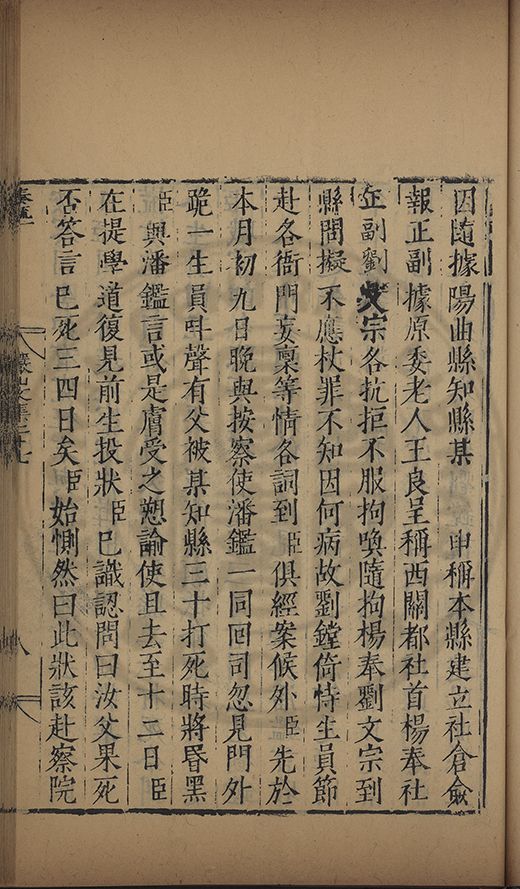 因隨據陽曲縣知縣某　申稱本縣建立社倉僉
報正副據原委老人王良呈稱西關都社首楊奉社
正副劉文宗各抗拒不服拘喚隨拘楊奉劉文宗到
縣問擬不應杖罪不知因何病故劉鏜倚恃生員節
赴各衙門妄稟等情各詞到臣俱經案候外臣先於
本月初九日晚與按察使潘鑑一同回司忽見門外
跪一生員呌聲有父被某知縣三十打死時將昏黑
臣與潘鑑言或是膚受之愬諭使且去至十二日臣
在提學道復見前生投狀臣已識認問曰汝父果死
否答言已死三四日矣臣始惻然曰此狀該赴察院
八